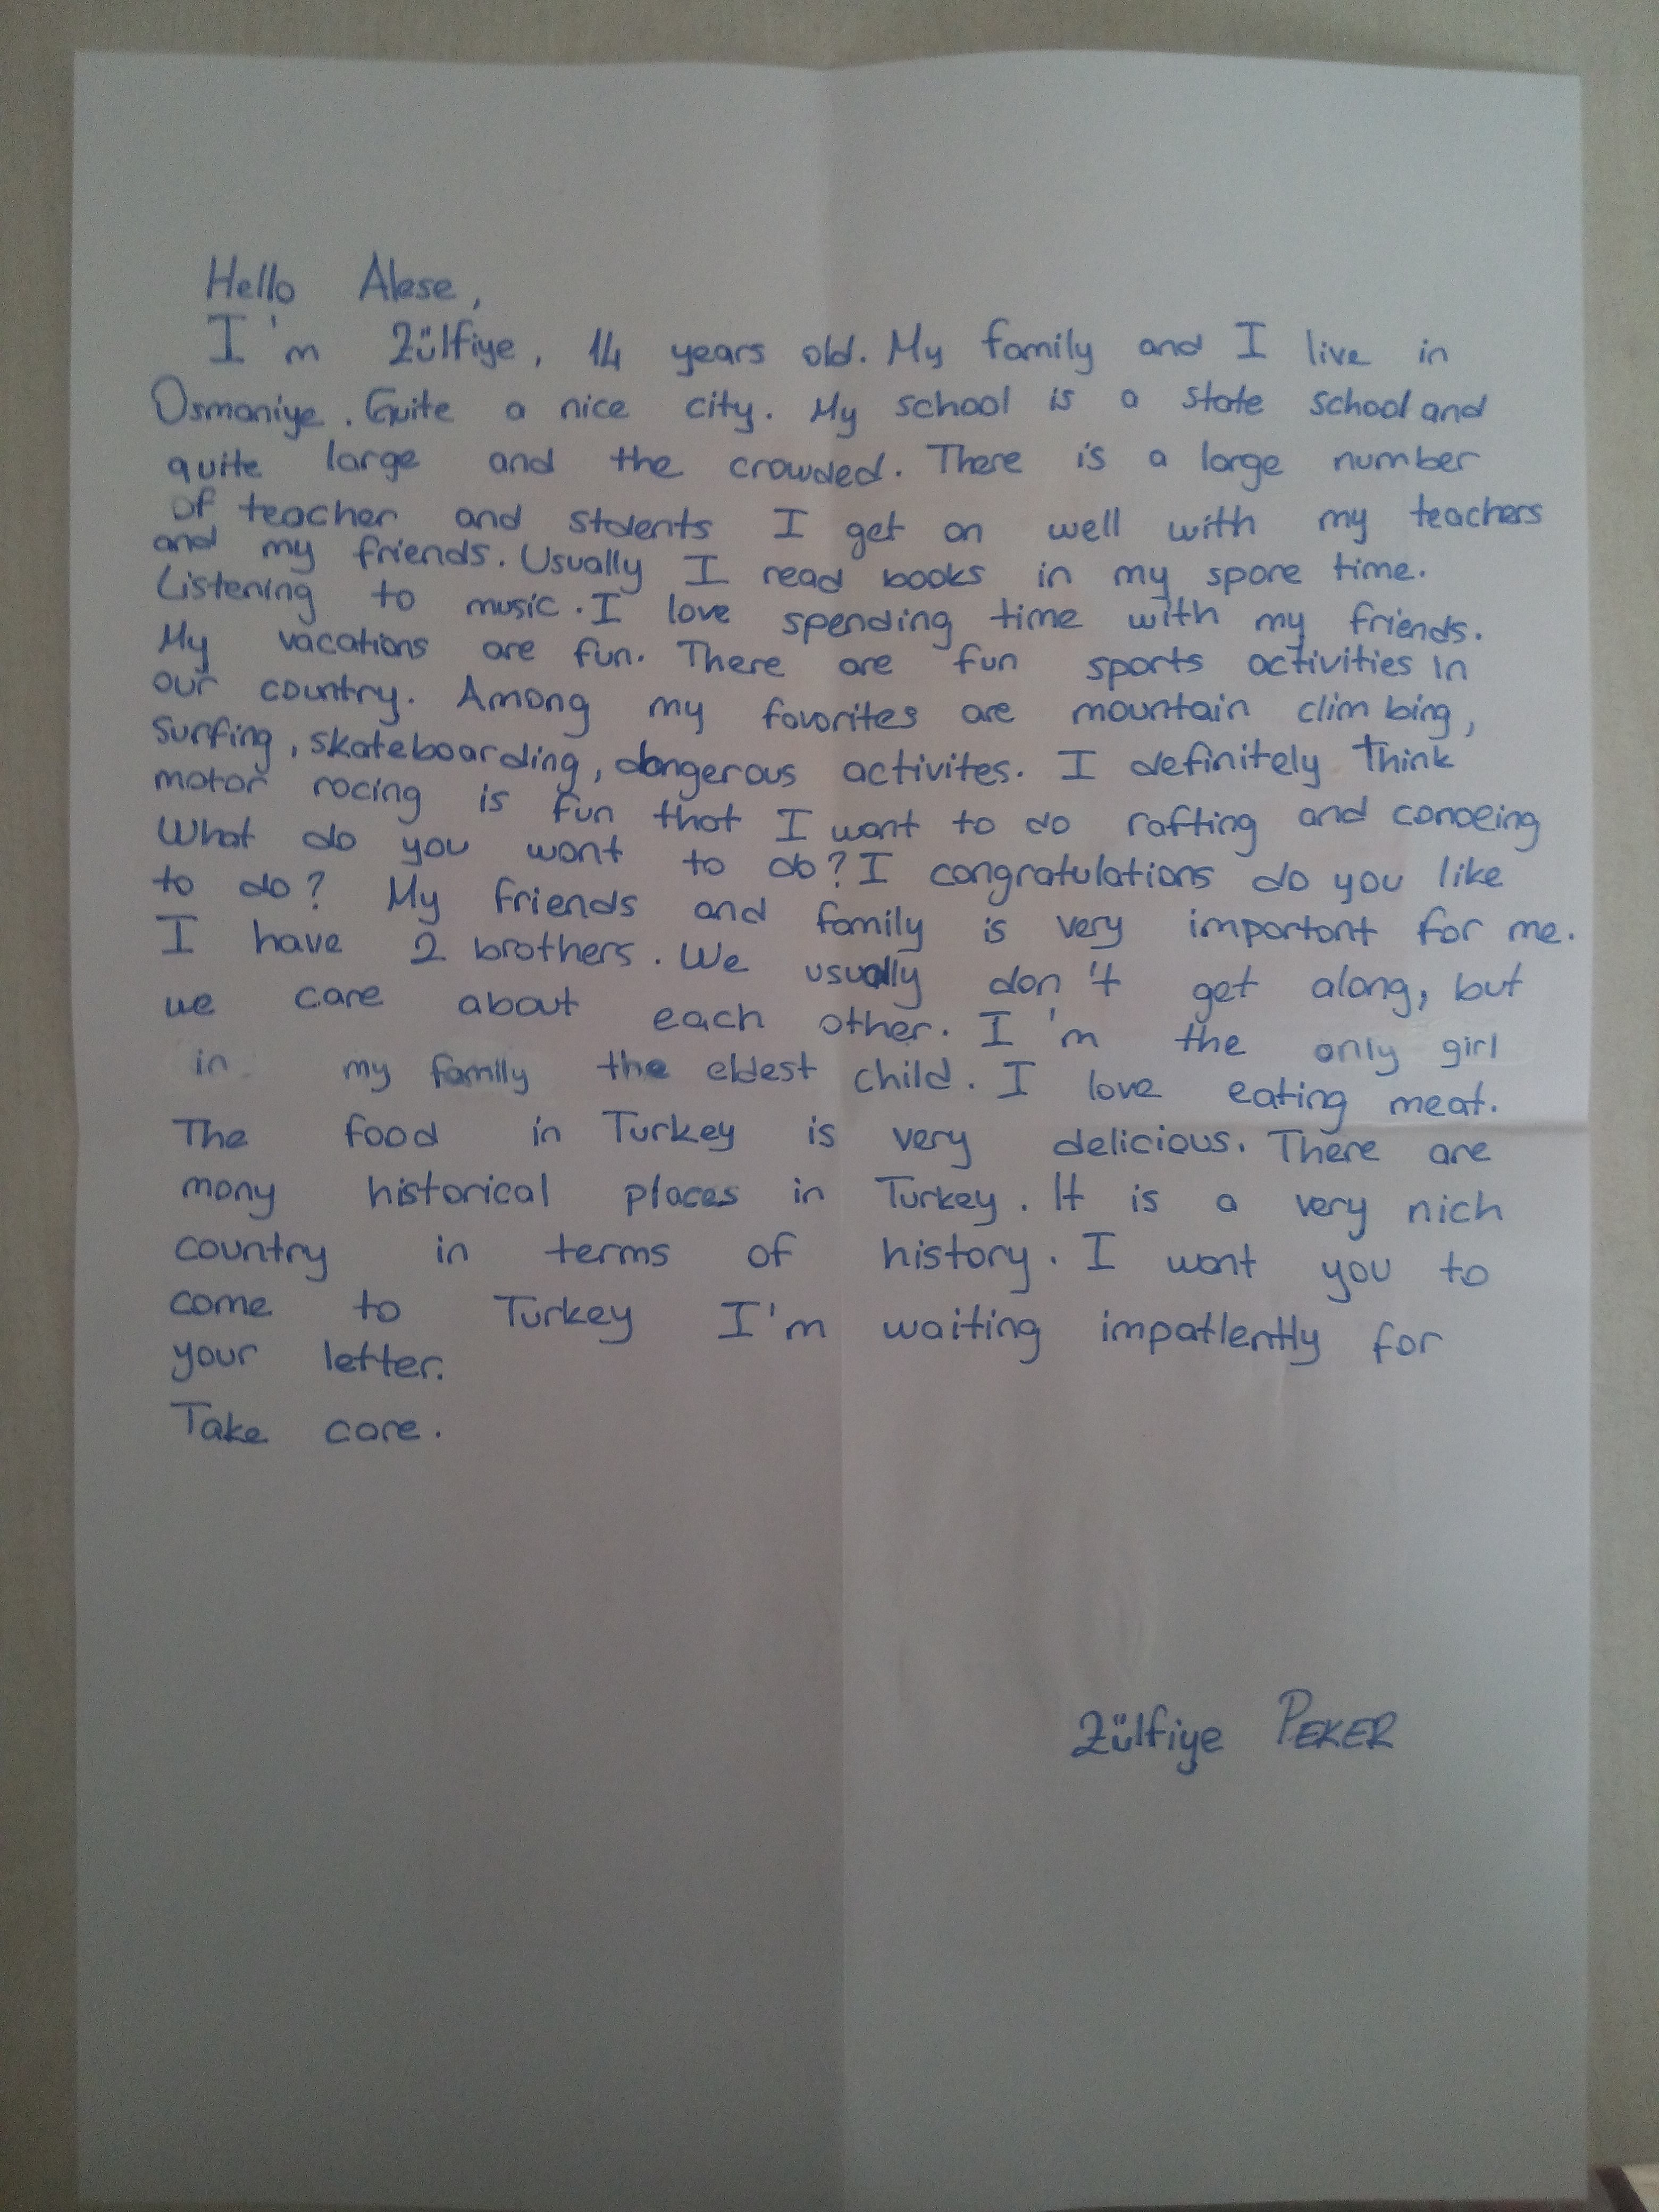 Hello Alese,
I'm Zülfiye, 14 years old. My family and I live in
Osmaniye. Quite a nice city. My school is a state school and
quite large and the crowded. There is a large number
of teacher and stdents I get on well with my teachers
and my friends. Usually I read books in my spare time.
Listening to music. I love spending time with my friends.
My vacations are fun. There are fun sports activities in
our country. Among my favorites are mountain climbing,
surfing, skateboarding, dangerous activites. I definitely think
motor racing is fun that I want to do rafting and canoeing
What do you want to do? I congratulations do you like
to do? My friends and family is very important for me.
I have 2 brothers. We usually don't get along, but
we care about each other. I'm the only girl
in my family the eldest child. I love eating meat.
The food in Turkey is very delicious. There are
many historical places in Turkey. It is a very nich
country in terms of history. I want you to
come to Turkey I'm waiting impatlently for
your letter.
Take care.
Zülfiye PEKER